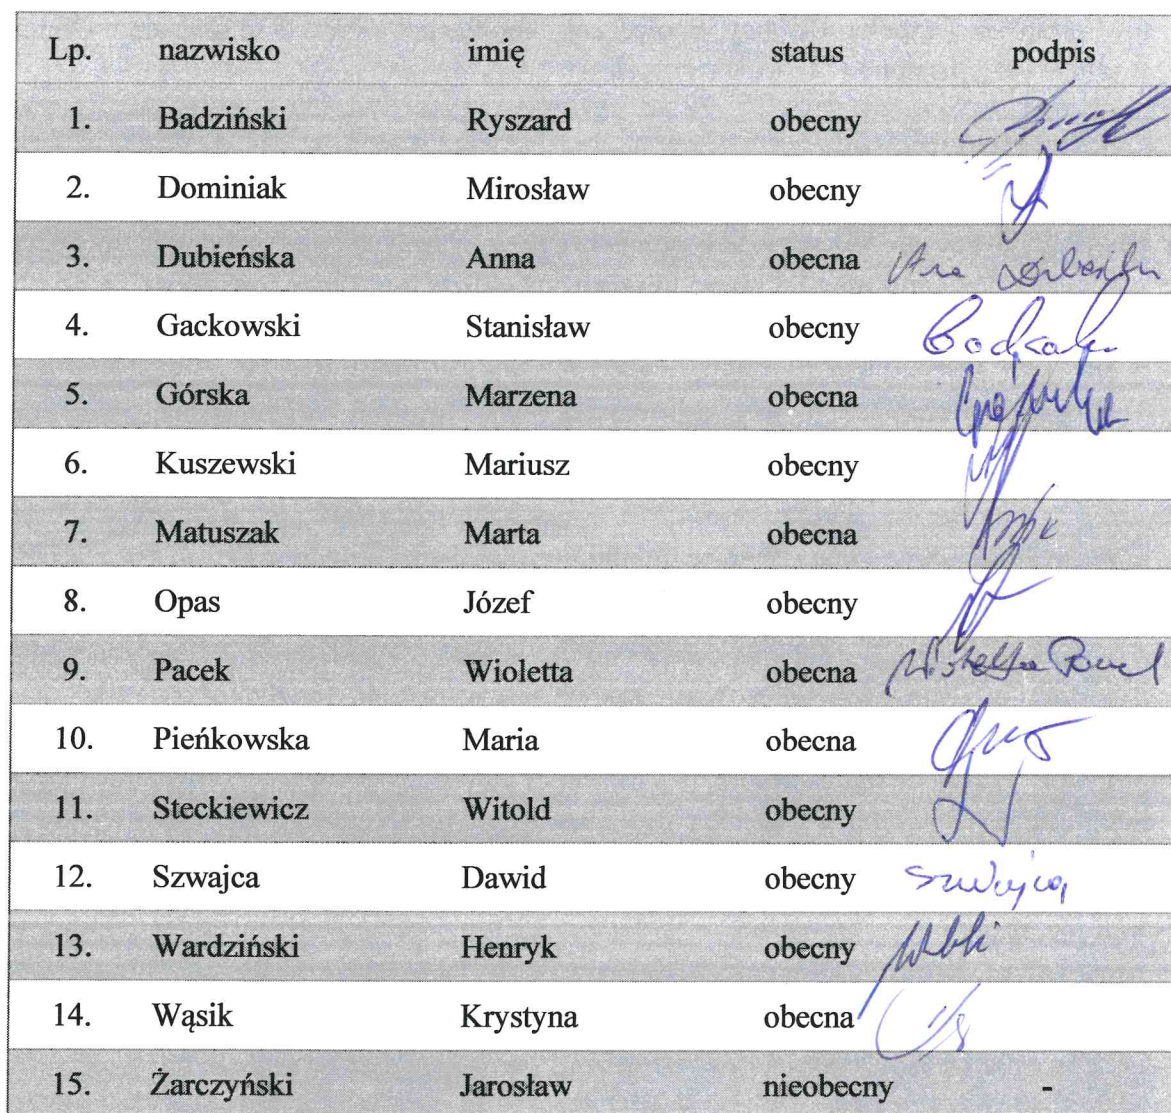 Lp. nazwisko imię status podpis
1. Badziński Ryszard obecny
2. Dominiak Mirosław obecny
3. Dubieńska Anna obecna
4. Gackowski Stanisław obecny
5. Górska Marzena obecna
6. Kuszewski Mariusz obecny
7. Matuszak Marta obecna
8. Opas Józef obecny
9. Pacek Wioletta obecna
10. Pieńkowska Maria obecna
11. Steckiewicz Witold obecny
12. Szwajca Dawid obecny Szwajca
13. Wardziński Henryk obecny
14. Wąsik Krystyna obecna
15. Żarczyński Jarosław nieobecny -